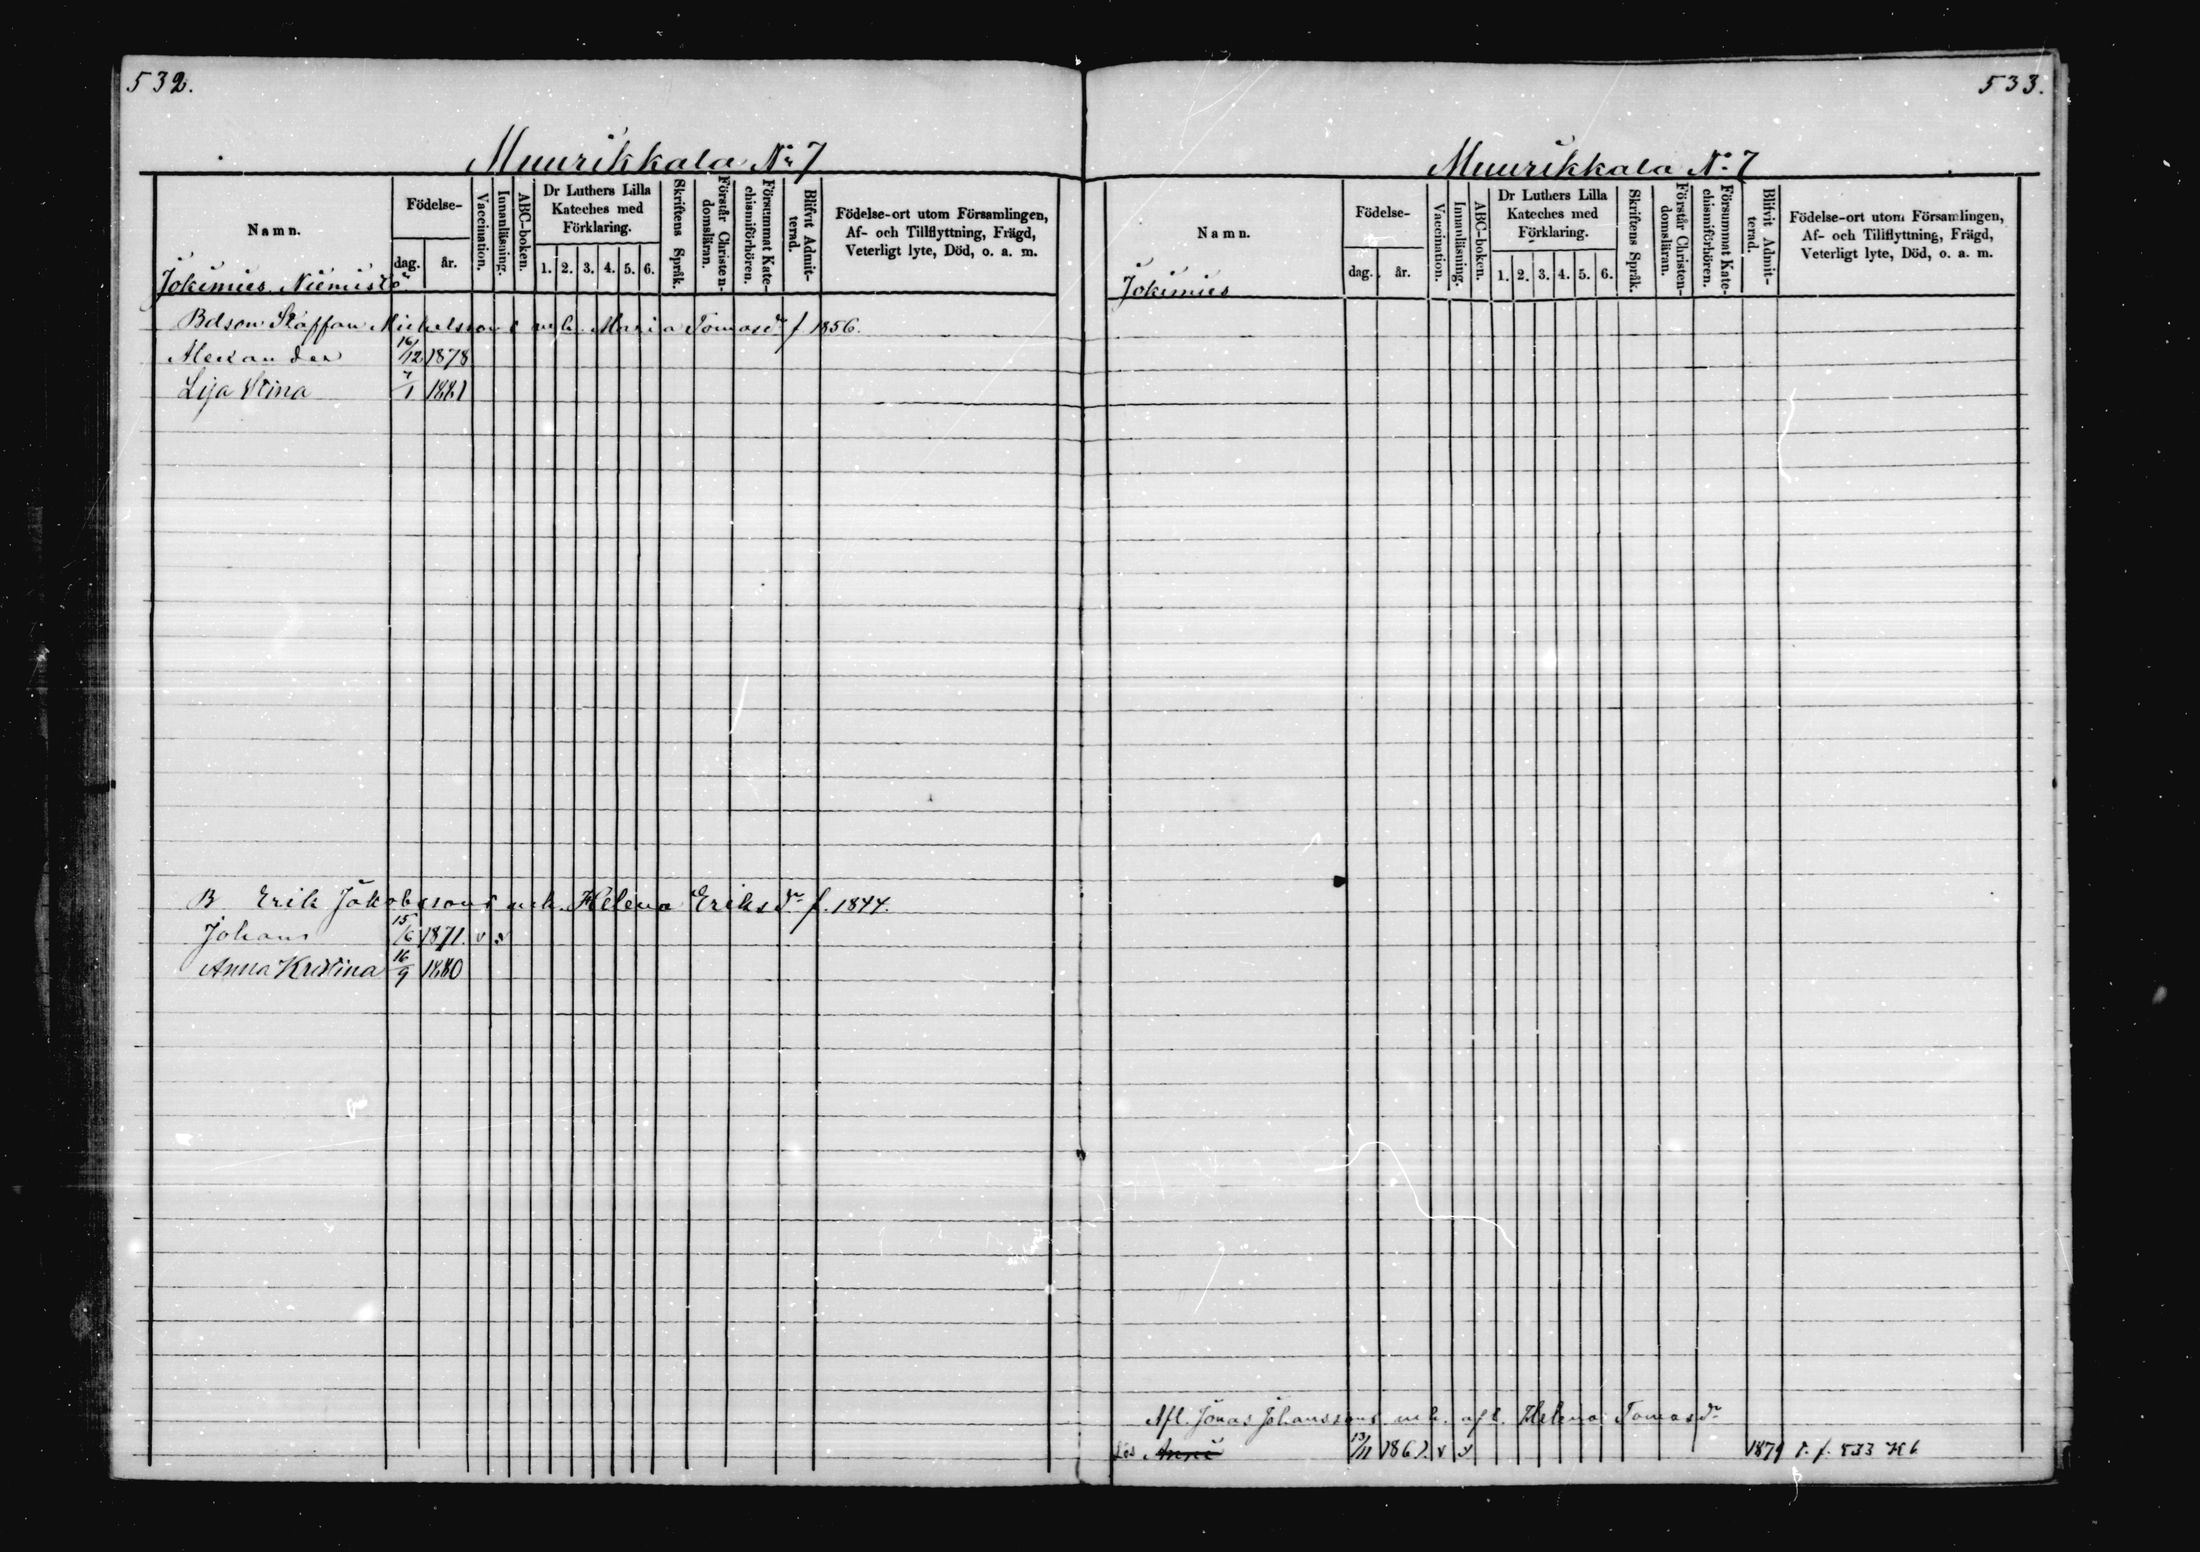 532.
Muurikkala No 7
Namn.
Födelse-
dag.
år.
Vaccination.
Innanläsning.
ABC-boken.
Dr Luthers Lilla
Kateches med
Förklaring.
1. 2. 3. 4. 5. 6.
Skriftens Språk.
Förstår Christen-
domsläran.
Försummat Kate-
chismiförhören.
Blifvit Admit-
terad.
Födelse-ort utom Församlingen,
Af- och Tillflyttning, Frägd,
Veterligt lyte, Död, o. a. m.
Jokimies Niemistö
Bdson Staffan Michelssons o mh. Maria Tomasdr f 1856.
Alexander 16/12 1878
Lisa Stina 7/1 1881
B Erik Jakobssons o mh. Helena Eriksdr f. 1844.
Johans 15/6 1871 v v
Anna Kristina 16/9 1880
533.
Muurikkala No 7
Namn.
Födelse-
dag.
år.
Vaccination.
Innanläsning.
ABC-boken.
Dr Luthers Lilla
Kateches med
Förklaring.
1. 2. 3. 4. 5. 6.
Skriftens Språk.
Förstår Christen-
domsläran.
Försummat Kate-
chismiförhören.
Blifvit Admit-
terad.
Födelse-ort utom Församlingen,
Af- och Tillflyttning, Frägd,
Veterligt lyte, Död, o. a. m.
Jokimies
Afl. Jonas Johanssons o mh. afl. Helena Tomasdr
Anni 13/11 1861. v v 1879 f. 533 K6